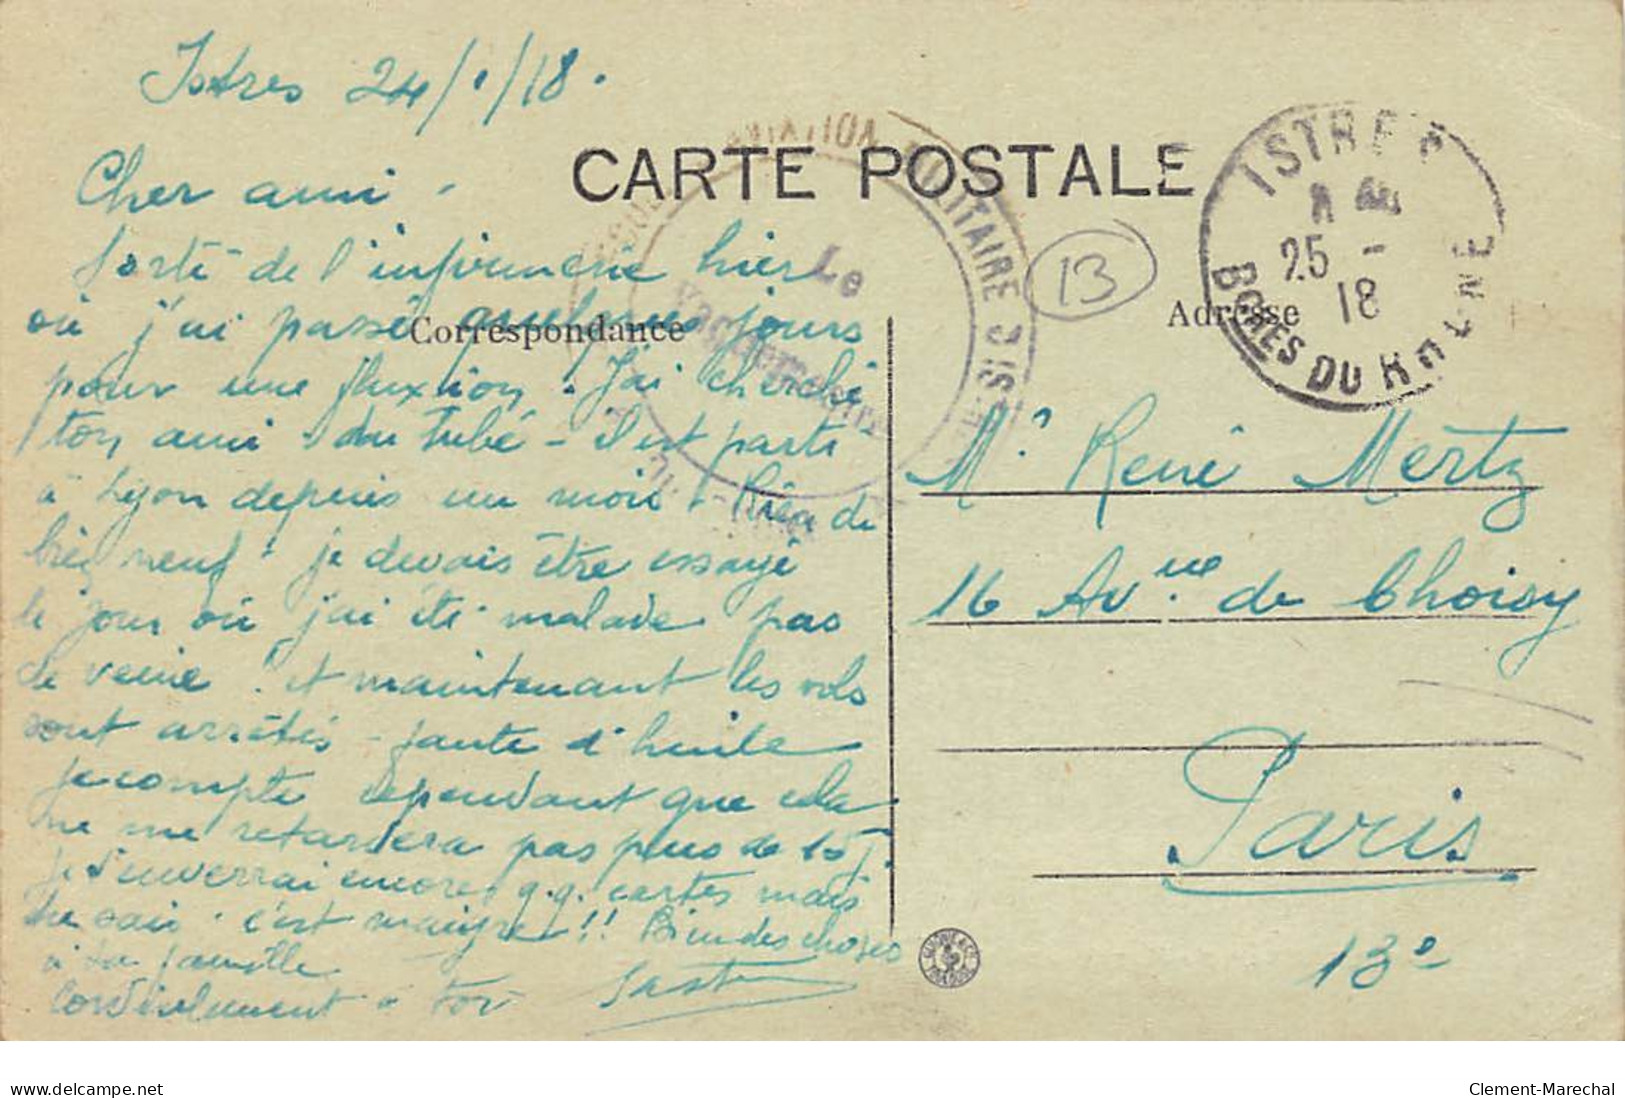 Istres 24/1/18.
CARTE POSTALE
Cher ami -
Sorti de l'infirmerie hier
où j'ai passé quelques jours
Correspondance
pour une fluxion. J'ai cherché
ton ami - du tubé - il est parti
à Lyon depuis un mois. Rien de
bien neuf. je devais être essayé
le jour où j'ai été malade pas
de veine! et maintenant les vols
sont arrêtés - faute d'huile
je compte cependant que cela
ne me retardera pas plus de 15 j.
Je t'enverrai encore q.q. cartes mais
tu sais. c'est maigre!! Bien des choses
à ta famille
Cordialement à toi
AVIATION MILITAIRE D'IST
Le
Vaguemestre
13
ISTRES
25 - 1
18
BCHES DU RHÔNE
Adresse
Mr René Mertz
16 Avnue de Choisy
Paris
13e
www.delcampe.net
Clement-Marechal